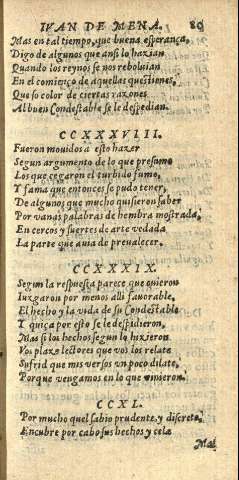 IVAN DE MENA. 80
Mas en tal tiempo, que buena esperança,
Digo de algunos que ansi lo hazian
Quando los reynos se nos reboluian
En el comienço de aquellas questiones,
Que so color de ciertas razones
Al buen Condestable se le despedian.
CCXXXVIII.
Fueron mouidos a esto hazer
Segun argumento de lo que presumo
Los que cegaron el turbido fumo,
Y fama que entonces se pudo tener,
De algunos que mucho quisieron saber
Por vanas palabras de hembra mostrada,
En cercos y suertes de arte vedada
La parte que auia de preualecer.
CCXXXIX.
Segun la respuesta parece que ouieron
Iuzgaron por menos alli fauorable,
El hecho y la vida de su Condestable
Y quiça por esto se le despidieron,
Mas si los hechos segun lo hizieron
Vos plaze lectores que vos los relate
Sufrid que mis versos vn poco dilate,
Porque vengamos en lo que vinieron.
CCXL.
Por mucho quel sabio prudente, y discreto,
Encubre por cabo sus hechos y cela
Mas